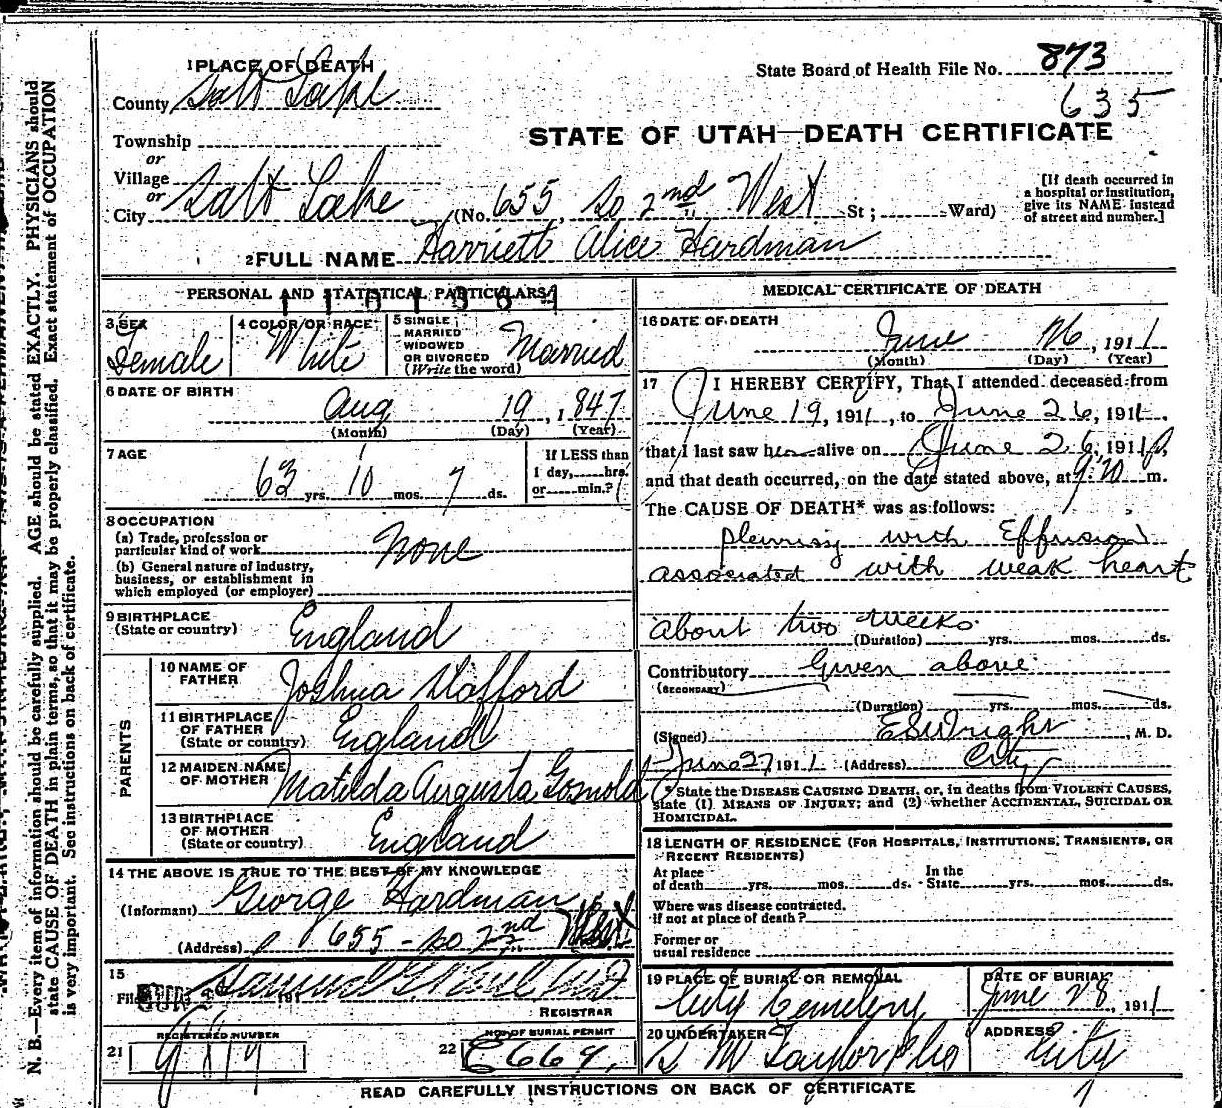 1 PLACE OF DEATH
County Salt Lake
Township
or
Village
or
City Salt Lake (No. 655, So 2nd West St; Ward)
State Board of Health File No. 873
635
STATE OF UTAH—DEATH CERTIFICATE
[If death occurred in
a hospital or institution,
give its NAME instead
of street and number.]
2 FULL NAME Harriett Alice Hardman
PERSONAL AND STATISTICAL PARTICULARS
3 SEX
Female
4 COLOR OR RACE
White
5 SINGLE
MARRIED
WIDOWED
OR DIVORCED
(Write the word)
Married
6 DATE OF BIRTH
Aug 19, 1847
(Month) (Day) (Year)
7 AGE
63 yrs. 10 mos. 7 ds.
If LESS than
1 day, hrs.
or min.?
8 OCCUPATION
(a) Trade, profession or
particular kind of work None
(b) General nature of industry,
business, or establishment in
which employed (or employer)
9 BIRTHPLACE
(State or country) England
PARENTS
10 NAME OF
FATHER Joshua Stafford
11 BIRTHPLACE
OF FATHER
(State or country) England
12 MAIDEN NAME
OF MOTHER Matilda Augusta Gosnold
13 BIRTHPLACE
OF MOTHER
(State or country) England
14 THE ABOVE IS TRUE TO THE BEST OF MY KNOWLEDGE
(Informant) George Hardman
(Address) 655 - So 2nd West
15
Filed 191
REGISTRAR
REGISTERED NUMBER
21
NO. OF BURIAL PERMIT
22 E669
MEDICAL CERTIFICATE OF DEATH
16 DATE OF DEATH
June 26, 1911
(Month) (Day) (Year)
17 I HEREBY CERTIFY, That I attended deceased from
June 19, 1911, to June 26, 1911,
that I last saw her alive on June 26, 1911,
and that death occurred, on the date stated above, at 9:20 m.
The CAUSE OF DEATH* was as follows:
pleurisy with Effusion
associated with weak heart
about two weeks
(Duration) yrs. mos. ds.
Contributory Given above
(SECONDARY)
(Duration) yrs. mos. ds.
(Signed) E S Wright, M. D.
June 27 1911 (Address) City
State the DISEASE CAUSING DEATH, or, in deaths from VIOLENT CAUSES,
state (1) MEANS OF INJURY; and (2) whether ACCIDENTAL, SUICIDAL OR
HOMICIDAL.
18 LENGTH OF RESIDENCE (FOR HOSPITALS, INSTITUTIONS, TRANSIENTS, OR
RECENT RESIDENTS)
At place
of death yrs. mos. ds.
In the
State yrs. mos. ds.
Where was disease contracted,
If not at place of death?
Former or
usual residence
19 PLACE OF BURIAL OR REMOVAL
City Cemetery
DATE OF BURIAL
June 28, 1911
20 UNDERTAKER
S M Taylor & Co
ADDRESS
City
READ CAREFULLY INSTRUCTIONS ON BACK OF CERTIFICATE
N. B.—Every item of information should be carefully supplied. AGE should be stated EXACTLY. PHYSICIANS should
state CAUSE OF DEATH in plain terms, so that it may be properly classified. Exact statement of OCCUPATION
is very important. See instructions on back of certificate.